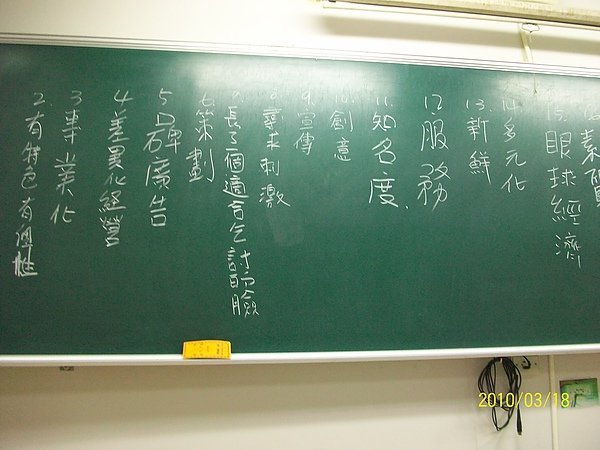 2.有特色有個性
3.專業化
4.差異化經營
5.口碑廣告
6.策劃
7.長了個適合乞討的臉
8.尋求刺激
9.宣傳
10.創意
11.知名度.
12.服務
13.新鮮
14.多元化
15.眼球經濟
素質
2010/03/18